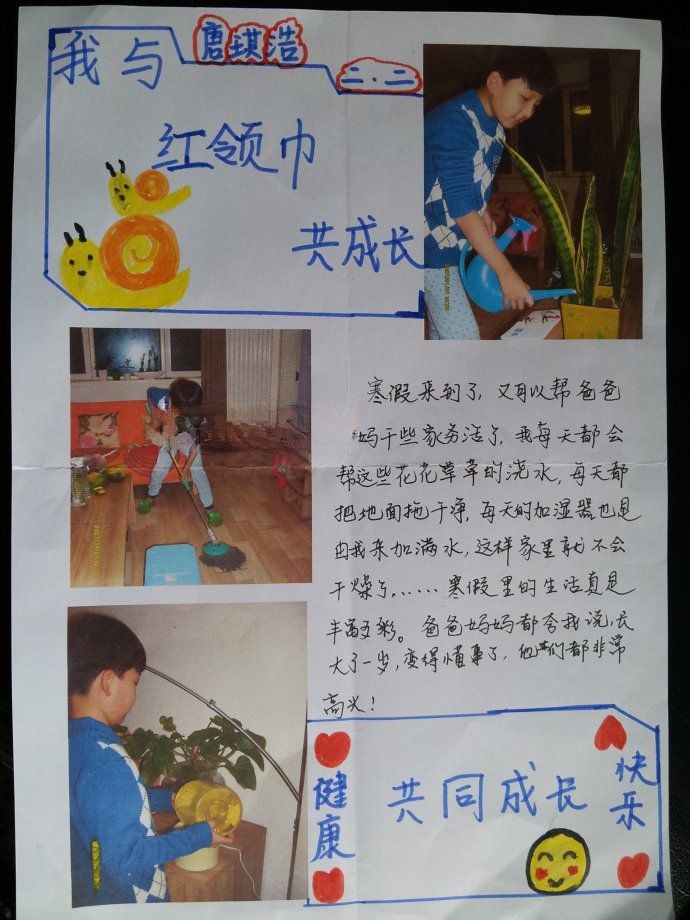 我与
唐琪浩
二.二
红领巾
共成长
寒假来到了，又可以帮爸爸
妈干些家务活了，我每天都会
帮这些花花草草的浇水，每天都
把地面拖干净，每天的加湿器也是
由我来加满水，这样家里就不会
干燥了，……寒假里的生活真是
丰富多彩。爸爸妈妈都夸我说，长
大了一岁，变得懂事了，他们都非常
高兴！
健康
共同成长
快乐